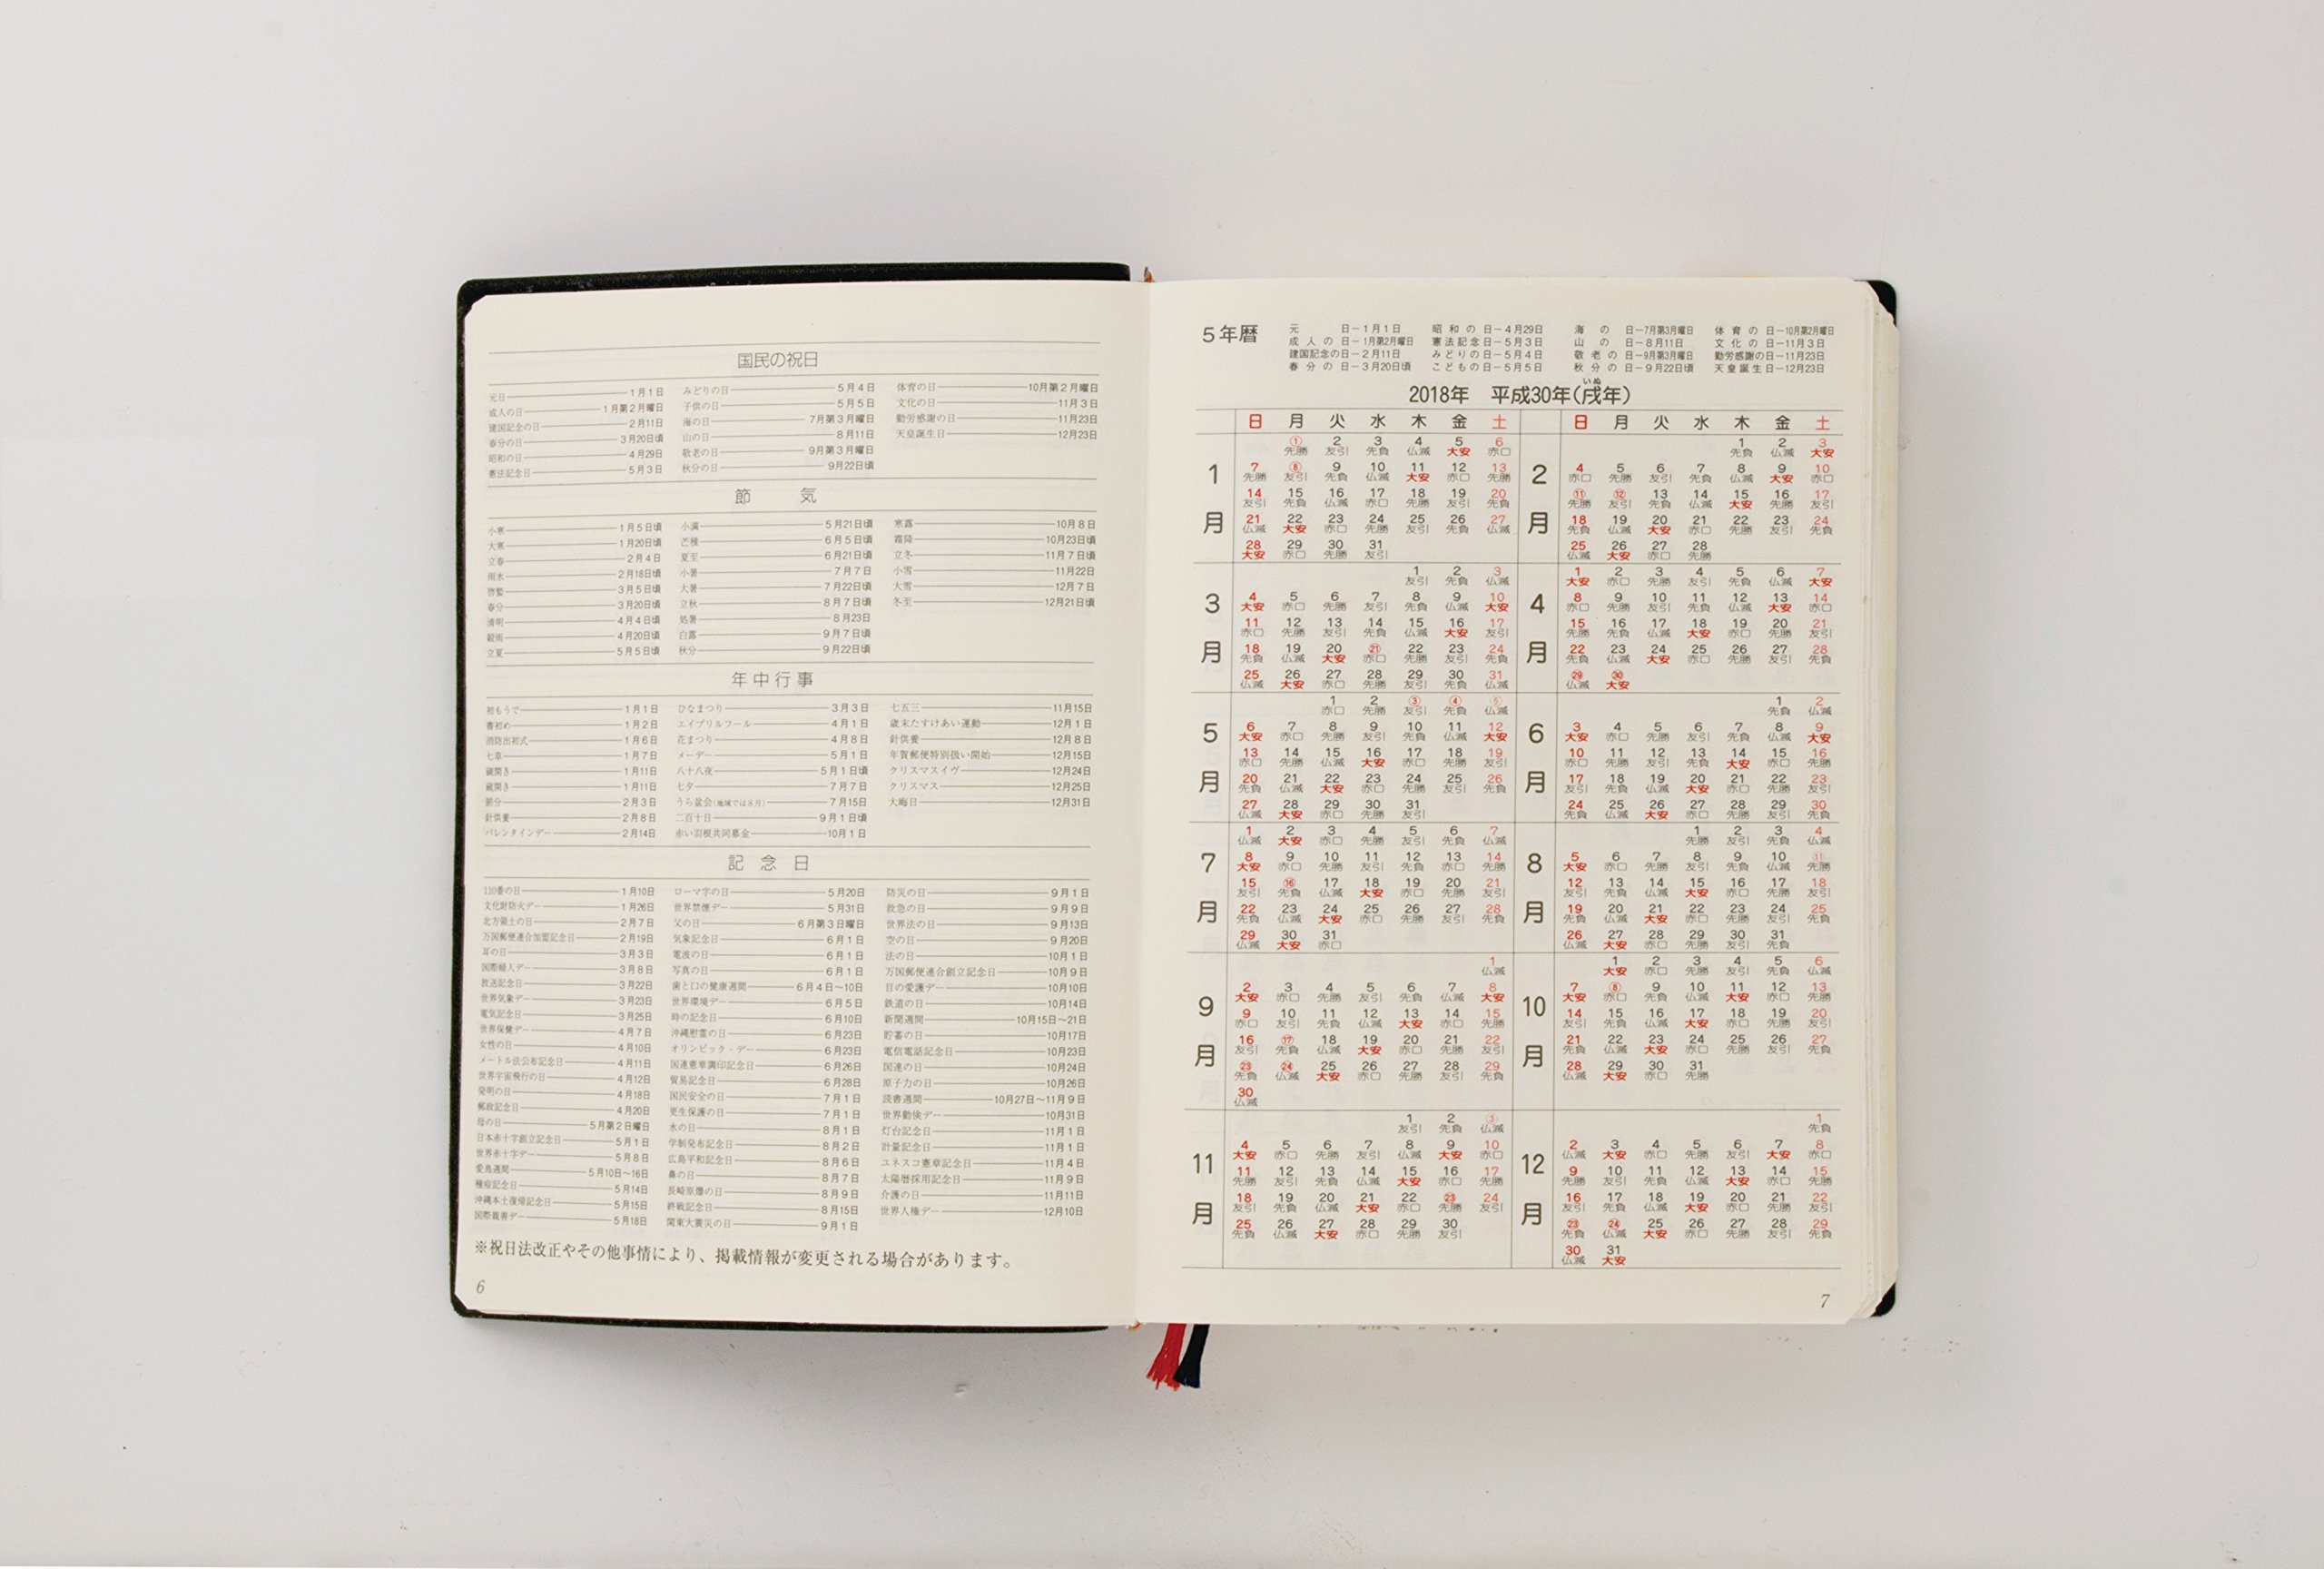 国民の祝日
元日 1月1日
成人の日 1月第2月曜日
建国記念の日 2月11日
春分の日 3月20日頃
昭和の日 4月29日
憲法記念日 5月3日
みどりの日 5月4日
子供の日 5月5日
海の日 7月第3月曜日
山の日 8月11日
敬老の日 9月第3月曜日
秋分の日 9月22日頃
体育の日 10月第2月曜日
文化の日 11月3日
勤労感謝の日 11月23日
天皇誕生日 12月23日
節 気
小寒 1月5日頃
大寒 1月20日頃
立春 2月4日
雨水 2月18日頃
啓蟄 3月5日頃
春分 3月20日頃
清明 4月4日頃
穀雨 4月20日頃
立夏 5月5日頃
小満 5月21日頃
芒種 6月5日頃
夏至 6月21日頃
小暑 7月7日
大暑 7月22日頃
立秋 8月7日頃
処暑 8月23日
白露 9月7日頃
秋分 9月22日頃
寒露 10月8日
霜降 10月23日頃
立冬 11月7日頃
小雪 11月22日
大雪 12月7日
冬至 12月21日頃
年中行事
初もうで 1月1日
書初め 1月2日
消防出初式 1月6日
七草 1月7日
蔵開き 1月11日
節分 2月3日
針供養 2月8日
バレンタインデー 2月14日
ひなまつり 3月3日
エイプリルフール 4月1日
花まつり 4月8日
メーデー 5月1日
八十八夜 5月1日頃
七夕 7月7日
うら盆会(地域では8月) 7月15日
二百十日 9月1日頃
赤い羽根共同募金 10月1日
七五三 11月15日
歳末たすけあい運動 12月1日
針供養 12月8日
年賀郵便特別扱い開始 12月15日
クリスマスイヴ 12月24日
クリスマス 12月25日
大晦日 12月31日
記 念 日
110番の日 1月10日
文化財防火デー 1月26日
北方領土の日 2月7日
万国郵便連合加盟記念日 2月19日
耳の日 3月3日
国際婦人デー 3月8日
放送記念日 3月22日
世界気象デー 3月23日
電気記念日 3月25日
世界保健デー 4月7日
女性の日 4月10日
メートル法公布記念日 4月11日
世界宇宙飛行の日 4月12日
発明の日 4月18日
郵政記念日 4月20日
母の日 5月第2日曜日
日本赤十字創立記念日 5月1日
世界赤十字デー 5月8日
愛鳥週間 5月10日〜16日
種痘記念日 5月14日
沖縄本土復帰記念日 5月15日
国際親善デー 5月18日
ローマ字の日 5月20日
世界禁煙デー 5月31日
父の日 6月第3日曜日
気象記念日 6月1日
電波の日 6月1日
写真の日 6月1日
歯と口の健康週間 6月4日〜10日
世界環境デー 6月5日
時の記念日 6月10日
沖縄慰霊の日 6月23日
オリンピック・デー 6月23日
国連憲章調印記念日 6月26日
貿易記念日 6月28日
国民安全の日 7月1日
更生保護の日 7月1日
水の日 8月1日
学制発布記念日 8月2日
広島平和記念日 8月6日
鼻の日 8月7日
長崎原爆の日 8月9日
終戦記念日 8月15日
関東大震災の日 9月1日
防災の日 9月1日
救急の日 9月9日
世界法の日 9月13日
空の日 9月20日
法の日 10月1日
万国郵便連合創立記念日 10月9日
目の愛護デー 10月10日
鉄道の日 10月14日
新聞週間 10月15日〜21日
貯蓄の日 10月17日
電信電話記念日 10月23日
国連の日 10月24日
原子力の日 10月26日
読書週間 10月27日〜11月9日
世界勤倹デー 10月31日
灯台記念日 11月1日
計量記念日 11月1日
ユネスコ憲章記念日 11月4日
太陽暦採用記念日 11月9日
介護の日 11月11日
世界人権デー 12月10日
※祝日法改正やその他事情により、掲載情報が変更される場合があります。
6
5年暦
元日－1月1日 昭和の日－4月29日 海の日－7月第3月曜日 体育の日－10月第2月曜日
成人の日－1月第2月曜日 憲法記念日－5月3日 山の日－8月11日 文化の日－11月3日
建国記念の日－2月11日 みどりの日－5月4日 敬老の日－9月第3月曜日 勤労感謝の日－11月23日
春分の日－3月20日頃 こどもの日－5月5日 秋分の日－9月22日頃 天皇誕生日－12月23日
いぬ
2018年 平成30年(戌年)
日 月 火 水 木 金 土 日 月 火 水 木 金 土
1月
① 2 3 4 5 6
先勝 友引 先負 仏滅 大安 赤口
7 ⑧ 9 10 11 12 13
先勝 友引 先負 仏滅 大安 赤口 先勝
14 15 16 17 18 19 20
友引 先負 仏滅 赤口 先勝 友引 先負
21 22 23 24 25 26 27
仏滅 大安 赤口 先勝 友引 先負 仏滅
28 29 30 31
大安 赤口 先勝 友引
2月
1 2 3
先負 仏滅 大安
4 5 6 7 8 9 10
赤口 先勝 友引 先負 仏滅 大安 赤口
⑪ ⑫ 13 14 15 16 17
先勝 友引 先負 仏滅 大安 先勝 友引
18 19 20 21 22 23 24
先負 仏滅 大安 赤口 先勝 友引 先負
25 26 27 28
仏滅 大安 赤口 先勝
3月
1 2 3
友引 先負 仏滅
4 5 6 7 8 9 10
大安 赤口 先勝 友引 先負 仏滅 大安
11 12 13 14 15 16 17
赤口 先勝 友引 先負 仏滅 大安 友引
18 19 20 ㉑ 22 23 24
先負 仏滅 大安 赤口 先勝 友引 先負
25 26 27 28 29 30 31
仏滅 大安 赤口 先勝 友引 先負 仏滅
4月
1 2 3 4 5 6 7
大安 赤口 先勝 友引 先負 仏滅 大安
8 9 10 11 12 13 14
赤口 先勝 友引 先負 仏滅 大安 赤口
15 16 17 18 19 20 21
先勝 先負 仏滅 大安 赤口 先勝 友引
22 23 24 25 26 27 28
先負 仏滅 大安 赤口 先勝 友引 先負
㉙ ㉚
仏滅 大安
5月
1 2 ③ ④ ⑤
赤口 先勝 友引 先負 仏滅
6 7 8 9 10 11 12
大安 赤口 先勝 友引 先負 仏滅 大安
13 14 15 16 17 18 19
赤口 先勝 仏滅 大安 赤口 先勝 友引
20 21 22 23 24 25 26
先負 仏滅 大安 赤口 先勝 友引 先負
27 28 29 30 31
仏滅 大安 赤口 先勝 友引
6月
1 2
先負 仏滅
3 4 5 6 7 8 9
大安 赤口 先勝 友引 先負 仏滅 大安
10 11 12 13 14 15 16
赤口 先勝 友引 先負 大安 赤口 先勝
17 18 19 20 21 22 23
友引 先負 仏滅 大安 赤口 先勝 友引
24 25 26 27 28 29 30
先負 仏滅 大安 赤口 先勝 友引 先負
7月
1 2 3 4 5 6 7
仏滅 大安 赤口 先勝 友引 先負 仏滅
8 9 10 11 12 13 14
大安 赤口 先勝 友引 先負 赤口 先勝
15 ⑯ 17 18 19 20 21
友引 先負 仏滅 大安 赤口 先勝 友引
22 23 24 25 26 27 28
先負 仏滅 大安 赤口 先勝 友引 先負
29 30 31
仏滅 大安 赤口
8月
1 2 3 4
先勝 友引 先負 仏滅
5 6 7 8 9 10 ⑪
大安 赤口 先勝 友引 先負 仏滅 先勝
12 13 14 15 16 17 18
友引 先負 仏滅 大安 赤口 先勝 友引
19 20 21 22 23 24 25
先負 仏滅 大安 赤口 先勝 友引 先負
26 27 28 29 30 31
仏滅 大安 赤口 先勝 友引 先負
9月
1
仏滅
2 3 4 5 6 7 8
大安 赤口 先勝 友引 先負 仏滅 大安
9 10 11 12 13 14 15
赤口 友引 先負 仏滅 大安 赤口 先勝
16 ⑰ 18 19 20 21 22
友引 先負 仏滅 大安 赤口 先勝 友引
㉓ ㉔ 25 26 27 28 29
先負 仏滅 大安 赤口 先勝 友引 先負
30
仏滅
10月
1 2 3 4 5 6
大安 赤口 先勝 友引 先負 仏滅
7 ⑧ 9 10 11 12 13
大安 赤口 先負 仏滅 大安 赤口 先勝
14 15 16 17 18 19 20
友引 先負 仏滅 大安 赤口 先勝 友引
21 22 23 24 25 26 27
先負 仏滅 大安 赤口 先勝 友引 先負
28 29 30 31
仏滅 大安 赤口 先勝
11月
1 2 ③
友引 先負 仏滅
4 5 6 7 8 9 10
大安 赤口 先勝 友引 仏滅 大安 赤口
11 12 13 14 15 16 17
先勝 友引 先負 仏滅 大安 赤口 先勝
18 19 20 21 22 ㉓ 24
友引 先負 仏滅 大安 赤口 先勝 友引
25 26 27 28 29 30
先負 仏滅 大安 赤口 先勝 友引
12月
1
先負
2 3 4 5 6 7 8
仏滅 大安 赤口 先勝 友引 大安 赤口
9 10 11 12 13 14 15
先勝 友引 先負 仏滅 大安 赤口 先勝
16 17 18 19 20 21 22
友引 先負 仏滅 大安 赤口 先勝 友引
㉓ ㉔ 25 26 27 28 29
先負 仏滅 大安 赤口 先勝 友引 先負
30 31
仏滅 大安
7